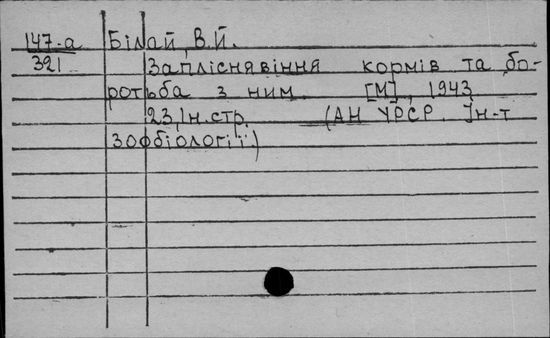 147-а Білай, В.Й.
321 Запліснявіння кормів та бо-
ротьба з ним. [М], 1943.
23, ін.стр. (АН УРСР. Ін-т
зообіології.)